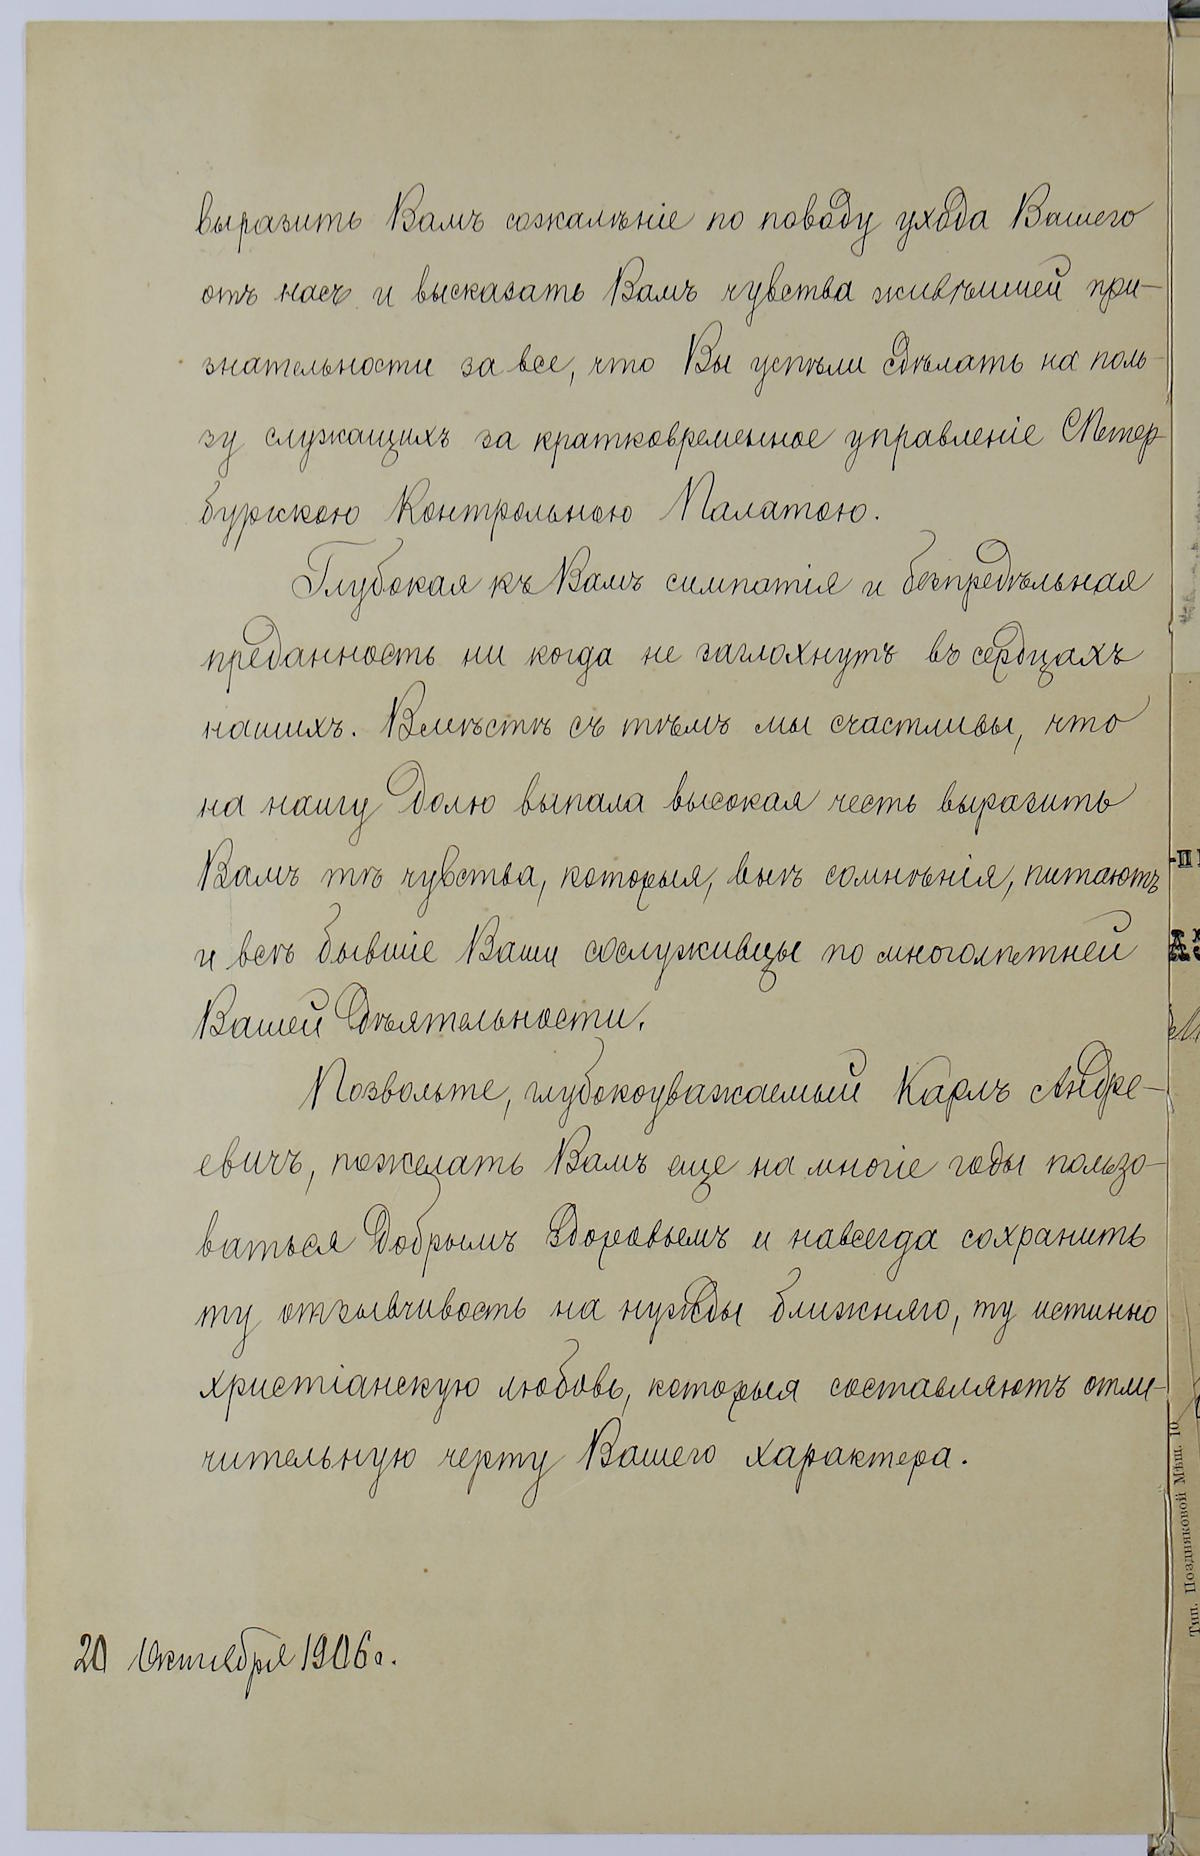 выразить Вамъ сожалѣніе по поводу ухода Вашего
отъ насъ и высказать Вамъ чувства живѣйшей при-
знательности за все, что Вы успѣли сдѣлать на поль-
зу служащихъ за кратковременное управленіе СПетер-
бургскою Контрольною Палатою.
Глубокая къ Вамъ симпатія и безпредѣльная
преданность ни когда не заглохнутъ въ сердцахъ
нашихъ. Вмѣстѣ съ тѣмъ мы счастливы, что
на нашу долю выпала высокая честь выразить
Вамъ тѣ чувства, которыя, внѣ сомнѣнія, питаютъ
и всѣ бывшіе Ваши сослуживцы по многолѣтней
Вашей дѣятельности.
Позвольте, глубокоуважаемый Карлъ Андре-
евичъ, пожелать Вамъ еще на многіе годы пользо-
ваться добрымъ здоровьемъ и навсегда сохранить
ту отзывчивость на нужды ближняго, ту истинно
христіанскую любовь, которыя составляютъ отли-
чительную черту Вашего характера.
20 Октября 1906 г.
Тип. Поздняковой Мѣщ. 10